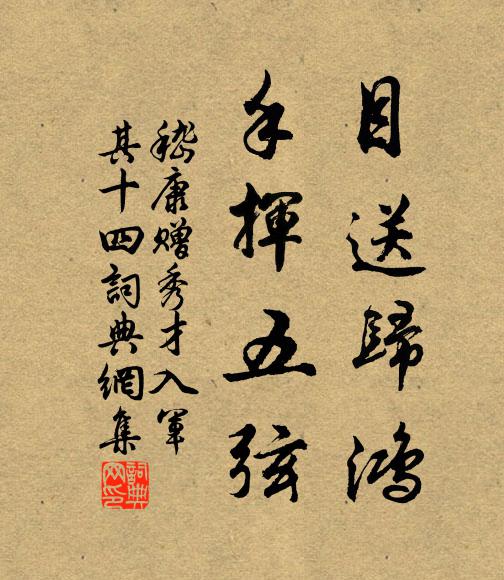 目送歸鴻
手揮五弦
嵇康贈秀才入軍
其十四詞典網集
詞典
网印